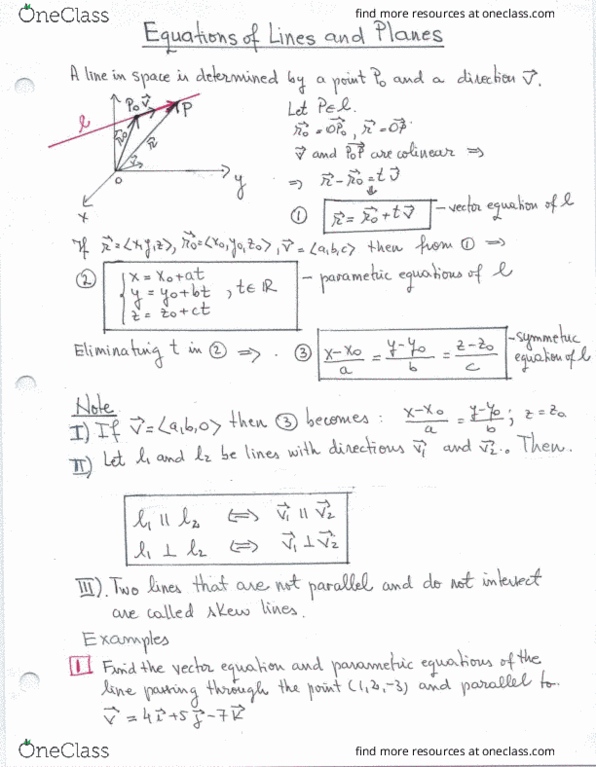 OneClass
find more resources at oneclass.com
Equations of Lines and Planes
A line in space is determined by a point P₀ and a direction v⃗.
Let P∈l.
r⃗₀ = OP⃗₀, r⃗ = OP⃗
v⃗ and P₀P⃗ are colinear ⇒
⇒ r⃗ - r⃗₀ = t v⃗
① r⃗ = r⃗₀ + t v⃗ - vector equation of l
l P₀ v⃗ P
r⃗₀ r⃗ v⃗
O y
x
If r⃗ = ⟨x,y,z⟩, r⃗₀ = ⟨x₀,y₀,z₀⟩, v⃗ = ⟨a,b,c⟩ then from ① ⇒
② { x = x₀+at
y = y₀+bt , t∈ℝ - parametric equations of l
z = z₀+ct
Eliminating t in ② ⇒. ③ (x-x₀)/a = (y-y₀)/b = (z-z₀)/c - symmetric equation of l
Note
I) If v⃗ = ⟨a,b,0⟩ then ③ becomes: (x-x₀)/a = (y-y₀)/b ; z = z₀
II) Let l₁ and l₂ be lines with directions v⃗₁ and v⃗₂. Then.
l₁ ∥ l₂ ⟺ v⃗₁ ∥ v⃗₂
l₁ ⊥ l₂ ⟺ v⃗₁ ⊥ v⃗₂
III). Two lines that are not parallel and do not intersect
are called skew lines.
Examples
1 Find the vector equation and parametric equations of the
line passing through the point (1,2,-3) and parallel to
v⃗ = 4i⃗ + 5j⃗ - 7k⃗
OneClass
find more resources at oneclass.com